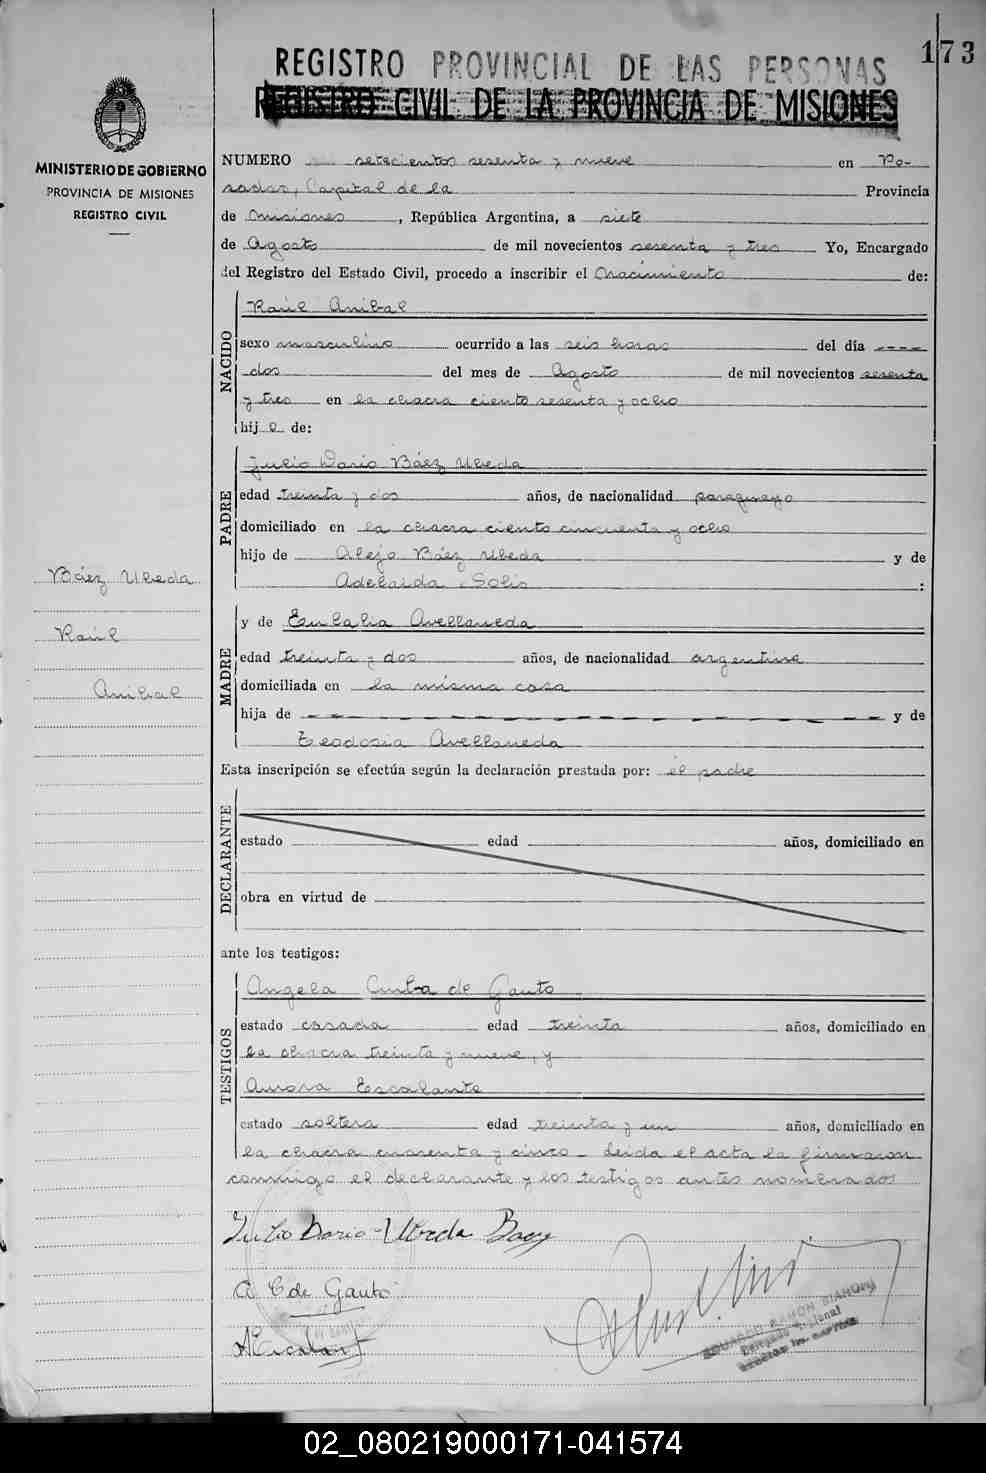 173
REGISTRO PROVINCIAL DE LAS PERSONAS
REGISTRO CIVIL DE LA PROVINCIA DE MISIONES
MINISTERIO DE GOBIERNO
PROVINCIA DE MISIONES
REGISTRO CIVIL
NUMERO setecientos sesenta y nueve en Po-
sadas, Capital de la Provincia
de Misiones, República Argentina, a siete
de Agosto de mil novecientos sesenta y tres Yo, Encargado
del Registro del Estado Civil, procedo a inscribir el Nacimiento de:
NACIDO
Raúl Anibal
sexo masculino ocurrido a las seis horas del día ----
dos del mes de Agosto de mil novecientos sesenta
y tres en la chacra ciento sesenta y ocho
hij o de:
PADRE
Julio Dario Báez Ubeda
edad treinta y dos años, de nacionalidad paraguayo
domiciliado en la chacra ciento cincuenta y ocho
hijo de Alejo Báez Ubeda y de
Adelaida Solis :
Báez Ubeda
Raúl
Anibal
MADRE
y de Eulalia Avellaneda
edad treinta y dos años, de nacionalidad argentina
domiciliada en la misma casa
hija de - - - - - - - - - - - - - - y de
Teodosia Avellaneda
Esta inscripción se efectúa según la declaración prestada por: el padre
DECLARANTE
estado edad años, domiciliado en
obra en virtud de
ante los testigos:
TESTIGOS
Angela de Gauto
estado casada edad treinta años, domiciliado en
la chacra treinta y nueve, y
Aurora Escalante
estado soltera edad treinta y un años, domiciliado en
la chacra cuarenta y cinco - Leida el acta la firmaron
conmigo el declarante y los testigos antes nombrados
Julio Dario Ubeda Baez
A C de Gauto
A Escalante
EDUARDO RAMON
02_080219000171-041574